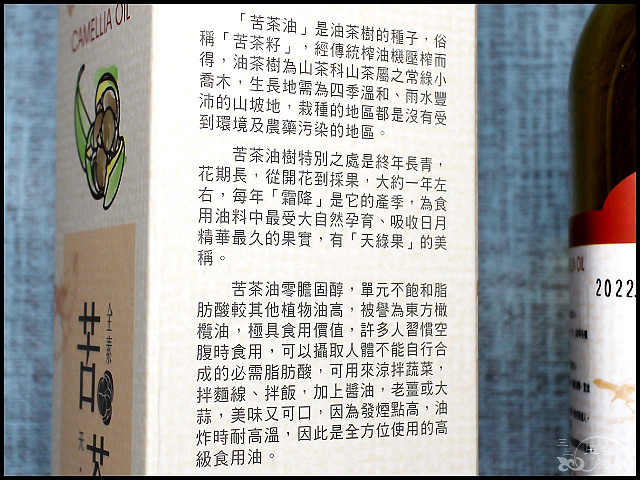 CAMELLIA OIL
全素
苦茶
天
「苦茶油」是油茶樹的種子，俗
稱「苦茶籽」，經傳統榨油機壓榨而
得，油茶樹為山茶科山茶屬之常綠小
喬木，生長地需為四季溫和、雨水豐
沛的山坡地，栽種的地區都是沒有受
到環境及農藥污染的地區。
苦茶油樹特別之處是終年長青，
花期長，從開花到採果，大約一年左
右，每年「霜降」是它的產季，為食
用油料中最受大自然孕育、吸收日月
精華最久的果實，有「天綠果」的美
稱。
苦茶油零膽固醇，單元不飽和脂
肪酸較其他植物油高，被譽為東方橄
欖油，極具食用價值，許多人習慣空
腹時食用，可以攝取人體不能自行合
成的必需脂肪酸，可用來涼拌蔬菜，
拌麵線、拌飯，加上醬油，老薑或大
蒜，美味又可口，因為發煙點高，油
炸時耐高溫，因此是全方位使用的高
級食用油。
OIL
2022.